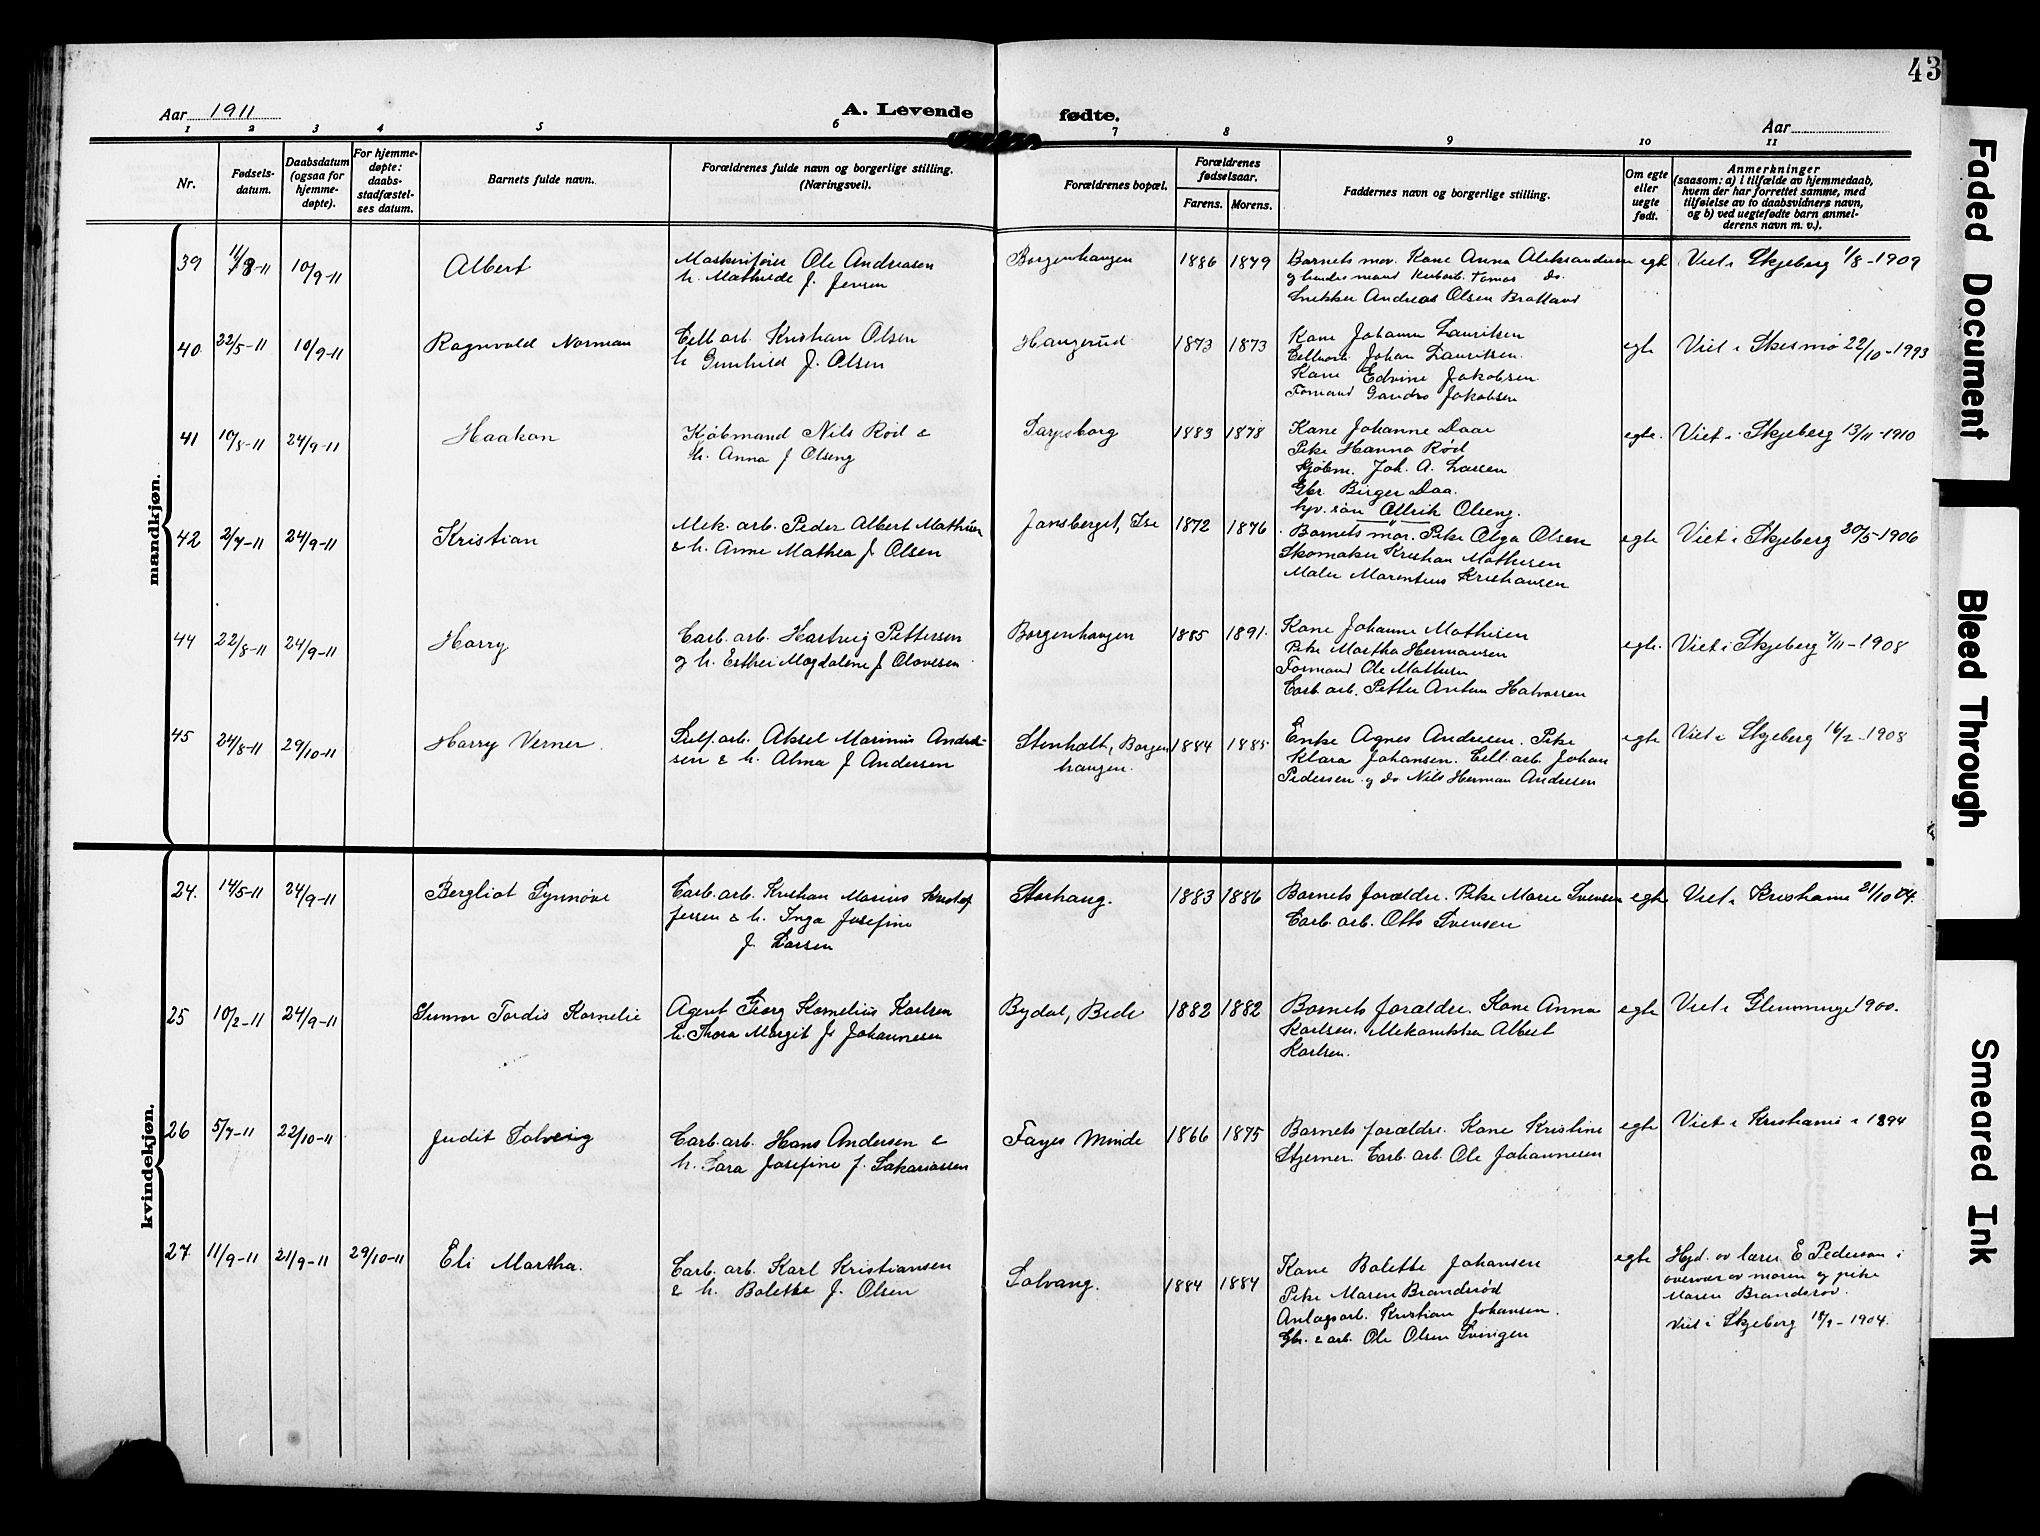 43
Aar 1911
A. Levende fødte.
Aar
1 2 3 4 5 6 7 8 9 10 11
Nr.
Fødsels-
datum.
Daabsdatum
(ogsaa for
hjemme-
døpte).
For hjemme-
døpte:
daabs-
stadfæstel-
ses datum.
Barnets fulde navn.
Forældrenes fulde navn og borgerlige stilling.
(Næringsvei).
Forældrenes bopæl.
Forældrenes
fødselsaar.
Farens. Morens.
Faddernes navn og borgerlige stilling.
Om egte
eller
uegte
født.
Anmerkninger
(saasom: a) i tilfælde av hjemmedaab,
hvem der har forrettet samme, med
tilføielse av to daabsvidners navn,
og b) ved uegtefødte barn anmel-
derens navn m. v.).
mandkjøn.
39 11/8-11 10/9-11 Albert
Ole Andreasen
h. Mathilde J. Jensen
Borgenhaugen 1886 1879
Barnets mor. Kone Anna Aleksandersen
og hendes mand Tomas do.
Snekker Andreas Olsen Bratland
egte Viet i Skjeberg 1/8-1909
40. 22/5-11 10/9-11 Ragnvald Norman
Cell. arb. Kristian Olsen
h. Gunhild J. Olsen
Haugerud 1873 1873
Kone Johanne Lauritsen
Johan Lauritsen.
Kone Edvine Jakobsen
Formand Jakobsen
egte Viet i 22/10-1993
41 10/8-11 24/9-11 Haakon
Kjøbmand Nils Rød &
h. Anna J Olseng
Sarpsborg 1883 1878
Kone Johanne Daae
Pike Hanna Rød
Kjøbm. Joh. A. Larsen
Gbr. Birger Daa.
søn Olseng.
egte. Viet i Skjeberg 13/11-1910
42 2/7-11 24/9-11 Kristian
Mek. arb. Peder Albert Mathisen
& h. Anne Mathea J. Olsen
Jonsberget, Ise 1872 1876
Barnets mor. Pike Olga Olsen
Skomaker Kristian Mathisen
Maler Marentius Kristiansen
egte Viet i Skjeberg 20/5-1906
44 22/8-11 24/9-11 Harry
Carb. arb. Hartvig Pettersen
og h. Esther Magdalene J Olavesen
Borgenhaugen 1885 1891.
Kone Johanne Mathisen
Pike Martha Hermansen
Formand Ole Mathisen
Carb. arb. Petter Anton Halvorsen
egte. Viet i Skjeberg 7/11-1908
45 24/8-11 29/10-11 Harry Verner.
Sulf. arb. Aksel Marinius Andre-
sen & h. Alma J Andersen
Stenholt, Borgen
haugen. 1884 1885
Enke Agnes Andresen. Pike
Klara Johansen. Cell. arb. Johan
Pedersen og do Nils Herman Andersen
egte Viet i Skjeberg 16/2-1908
kvindekjøn.
24. 14/5-11 24/9-11 Bergliot Synnøve
Carb. arb. Kristian Marius Kristof
fersen & h. Inga Josefine
J. Larsen
Storhaug. 1883 1886
Barnets forældre. Pike Marie Svensen
Carb. arb. Otto Svensen
egte Viet i Kristiania 21/10 04.
25 10/2-11 24/9-11 Gunvor Tordis Kornelie
Agent Georg Kornelius Karlsen
h. Thora Margit J. Johannesen
Bydal, Bede 1882 1882
Barnets forældre. Kone Anna
Karlsen. Mekanikker Albert
Karlsen.
egte Viet i Glemminge 1900.
26 5/7-11 22/10-11 Judit Solveig
Carb. arb. Hans Andersen &
h. Sara Josefine J. Sakariassen
Fayes Minde 1866 1875
Barnets forældre. Kone Kristine
Stjerner. Carb. arb. Ole Johannesen
egte Viet i Kristiania i 1894
27. 11/9-11 21/9-11 29/10-11 Eli Martha.
Carb. arb. Karl Kristiansen
& h. Bolette J. Olsen
Solvang. 1884 1884
Kone Bolette Johansen
Pike Maren Brandsrød
Anlagsarb. Kristian Johansen.
Gbr. & arb. Ole Olsen Svingen
egte Hjd. av lærer E. Pederson i
overvær av moren og pike
Maren Brandsrød.
Viet i Skjeberg 18/9-1904.
Faded Document
Bleed Through
Smeared Ink